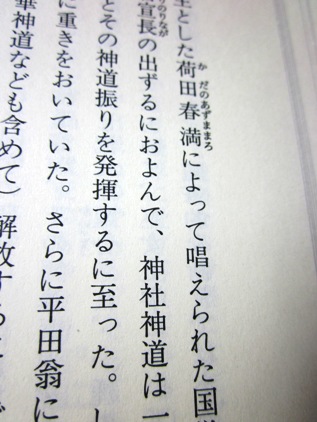 とした荷田春満によって唱えられた国
かだのあずままろ
宣長の出ずるにおよんで、神社神道は一
のりなが
とその神道振りを発揮するに至った。
に重きをおいていた。さらに平田翁に
神道なども含めて）解放する